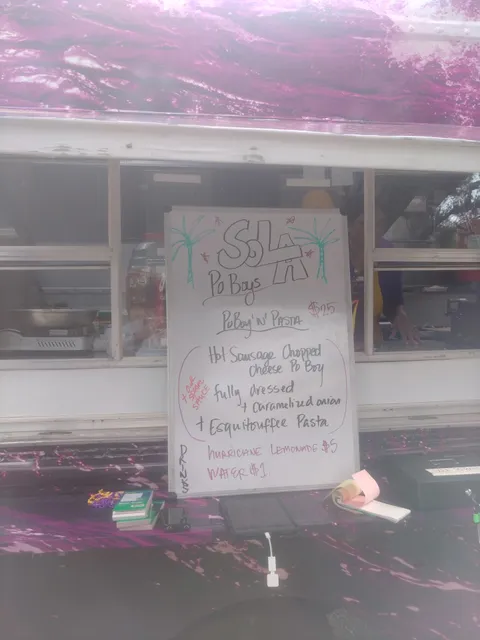 SoLA
Po Boys
$25
PoBoy 'N' PASTA
Hot Sausage Chopped
Cheese Po Boy
fully dressed
+ Caramelized onion
+ Esquitouffee Pasta
DRINKS
HURRICANE LEMONADE $5
WATER $1